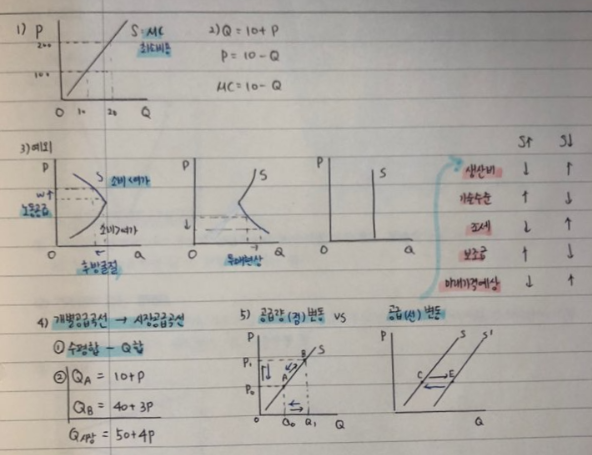 1) P
S=MC
최소비용
200
100
0 10 20 Q
2) Q = 10+P
P = 10-Q
MC = 10-Q
3) 예외
P
S 소비<여가
W↑
노동공급
소비>여가
0 Q
후방굴절
P
S
↓
0 Q
투매현상
P
S
0 Q
S↑ S↓
생산비 ↓ ↑
기술수준 ↑ ↓
조세 ↓ ↑
보조금 ↑ ↓
미래가격예상 ↓ ↑
4) 개별공급곡선 → 시장공급곡선
① 수평합 - Q합
② QA = 10+P
QB = 40+3P
Q시장 = 50+4P
5) 공급량(점)변동 vs 공급(선)변동
P
P1
P0
A B S
0 Q0 Q1 Q
P
S S'
C E
Q